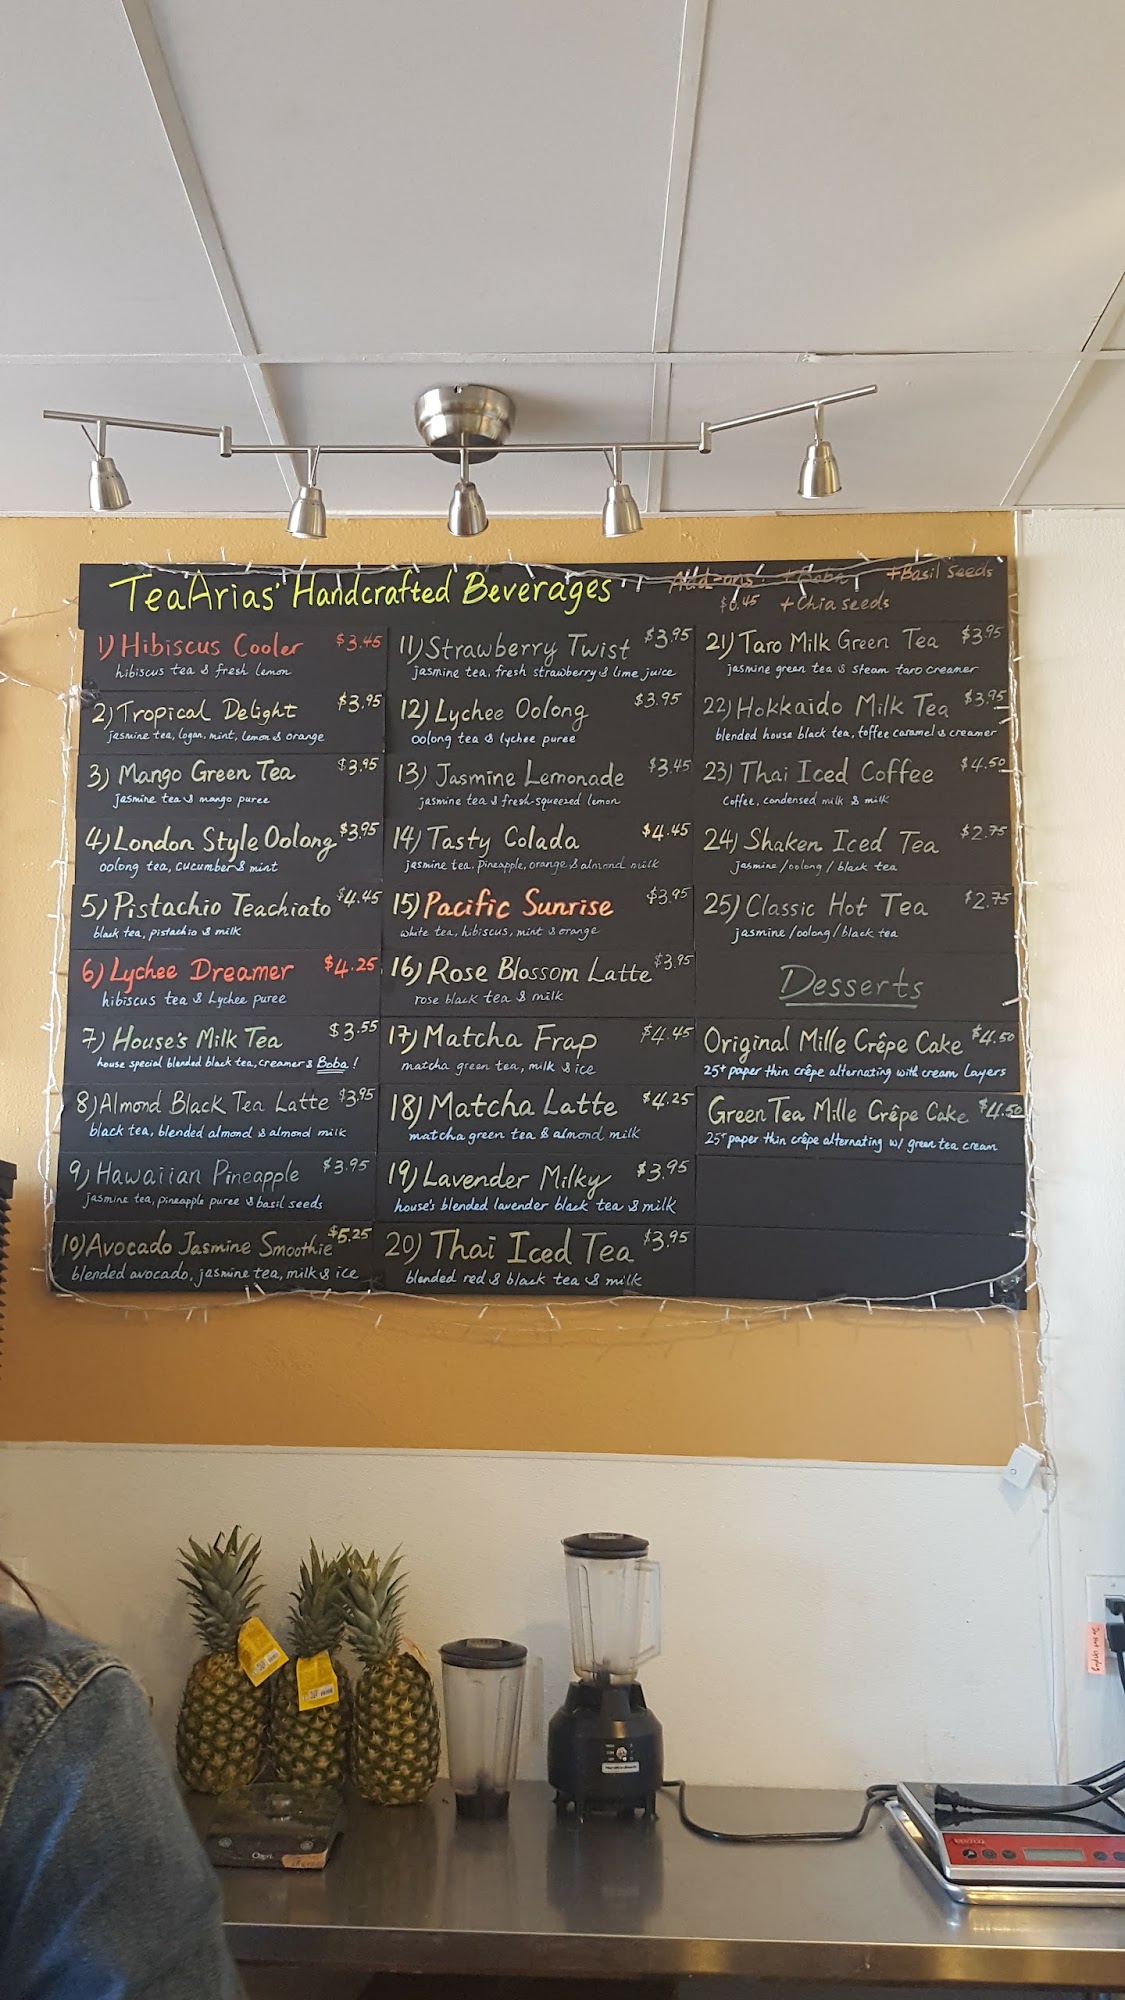 TeaArias' Handcrafted Beverages
Add-ons: + Boba + Basil Seeds
$0.45 + Chia seeds
1) Hibiscus Cooler $3.45
hibiscus tea & fresh lemon
2) Tropical Delight $3.95
jasmine tea, logan, mint, lemon & orange
3) Mango Green Tea $3.95
jasmine tea & mango puree
4) London Style Oolong $3.95
oolong tea, cucumber & mint
5) Pistachio Teachiato $4.45
black tea, pistachio & milk
6) Lychee Dreamer $4.25
hibiscus tea & Lychee puree
7) House's Milk Tea $3.55
house special blended black tea, creamer & Boba!
8) Almond Black Tea Latte $3.95
black tea, blended almond & almond milk
9) Hawaiian Pineapple $3.95
jasmine tea, pineapple puree & basil seeds
10) Avocado Jasmine Smoothie $5.25
blended avocado, jasmine tea, milk & ice
11) Strawberry Twist $3.95
jasmine tea, fresh strawberry & lime juice
12) Lychee Oolong $3.95
oolong tea & lychee puree
13) Jasmine Lemonade $3.45
jasmine tea & fresh-squeezed lemon
14) Tasty Colada $4.45
jasmine tea, pineapple, orange & almond milk
15) Pacific Sunrise $3.95
white tea, hibiscus, mint & orange
16) Rose Blossom Latte $3.95
rose black tea & milk
17) Matcha Frap $4.45
matcha green tea, milk & ice
18) Matcha Latte $4.25
matcha green tea & almond milk
19) Lavender Milky $3.95
house's blended lavender black tea & milk
20) Thai Iced Tea $3.95
blended red & black tea & milk
21) Taro Milk Green Tea $3.95
jasmine green tea & steam taro creamer
22) Hokkaido Milk Tea $3.95
blended house black tea, toffee caramel & creamer
23) Thai Iced Coffee $4.50
Coffee, condensed milk & milk
24) Shaken Iced Tea $2.75
jasmine/oolong/black tea
25) Classic Hot Tea $2.75
jasmine/oolong/black tea
Desserts
Original Mille Crêpe Cake $4.50
25+ paper thin crêpe alternating with cream layers
Green Tea Mille Crêpe Cake $4.50
25+ paper thin crêpe alternating w/ green tea cream